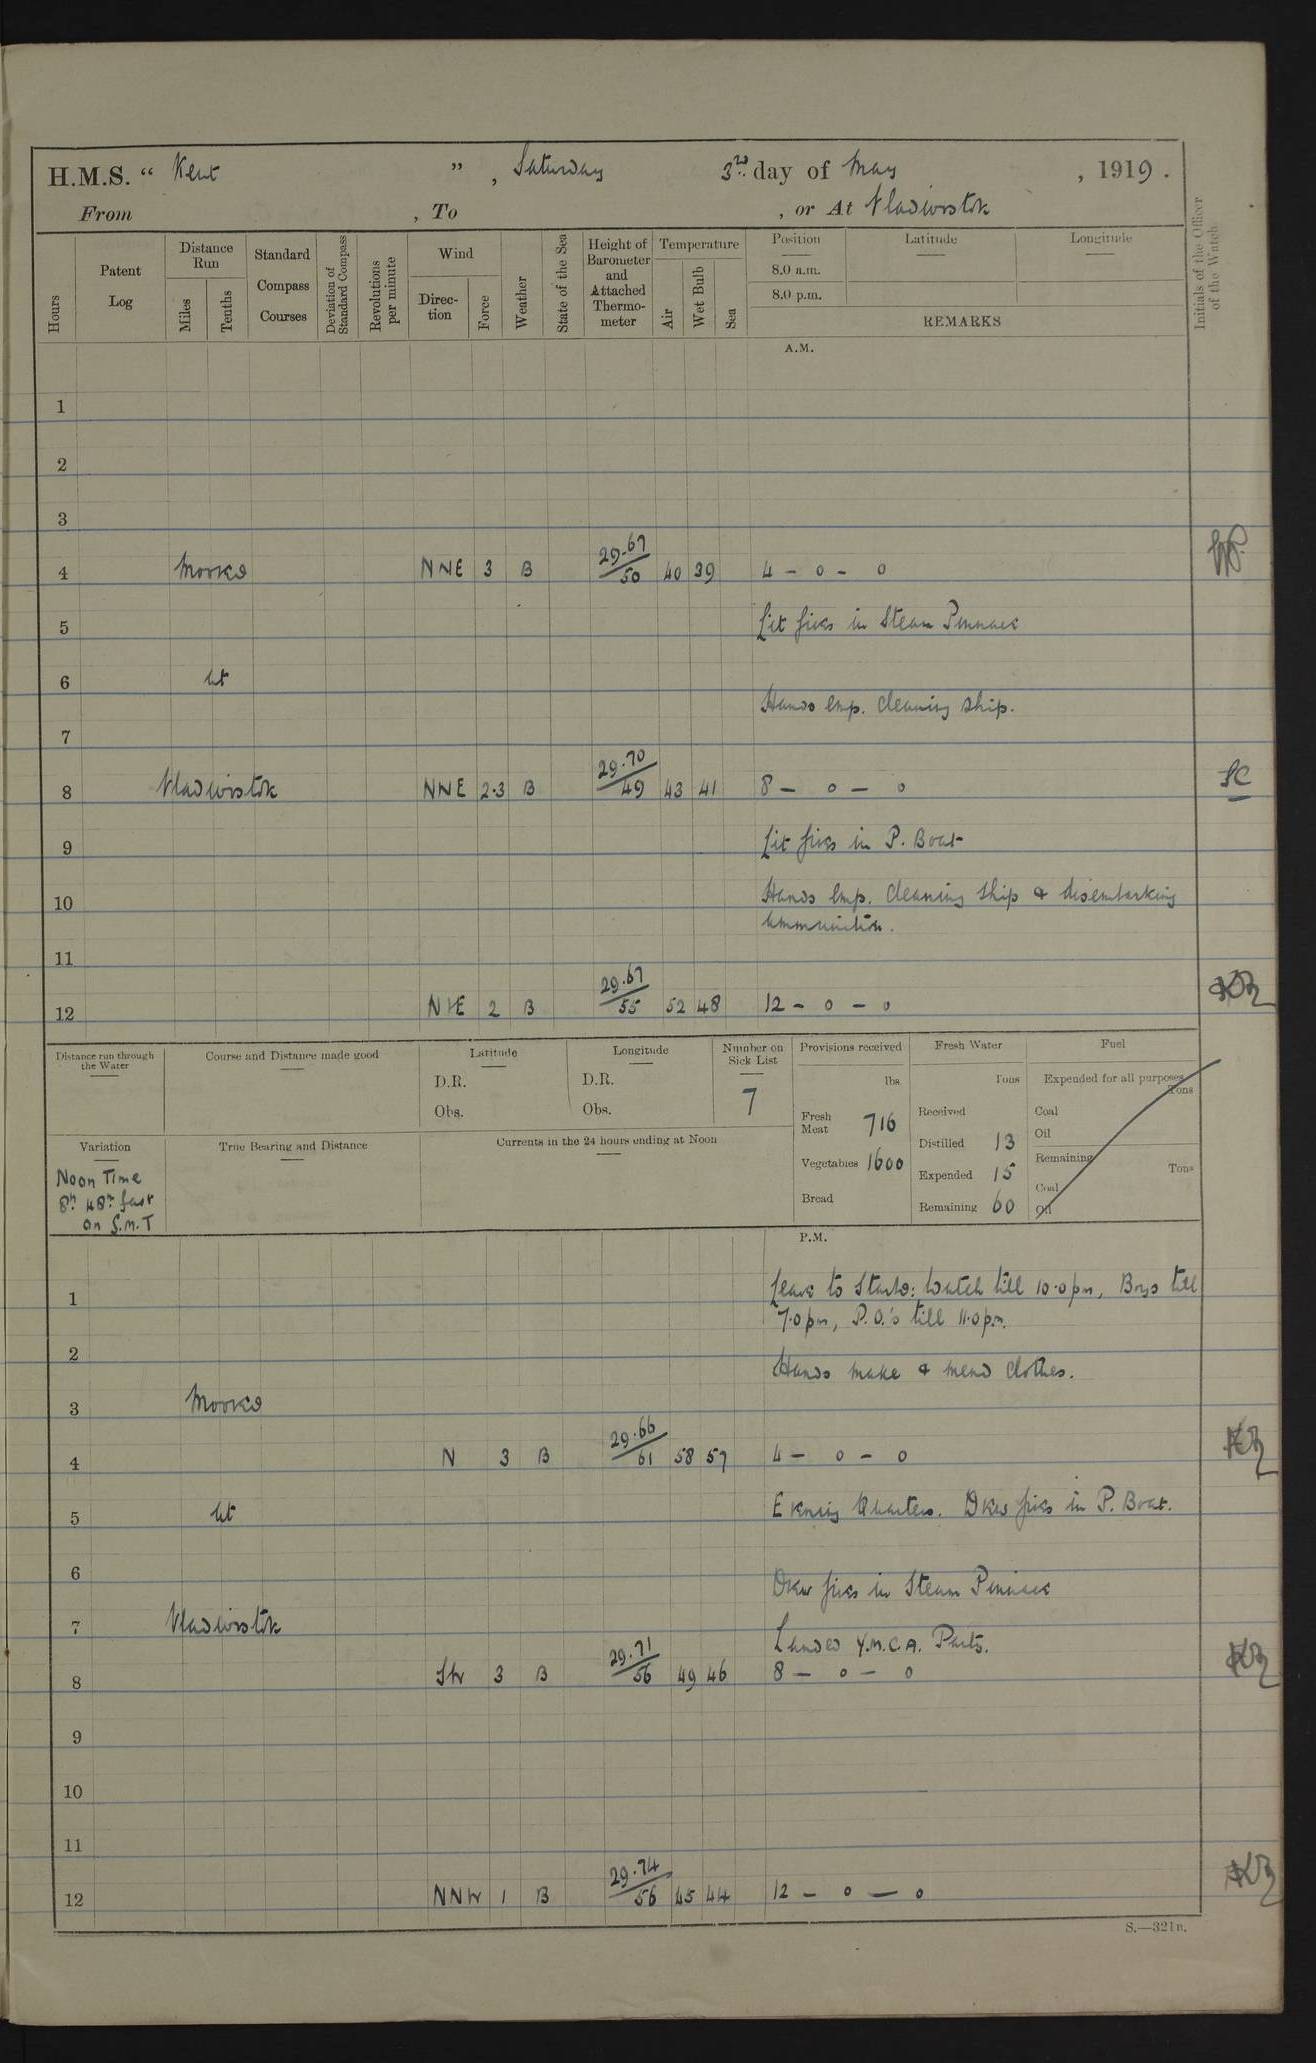 H.M.S. “ Kent ” , Saturday 3rd day of May , 1919 .
From , To , or At Vladivostok
Hours
Patent Log
Distance Run
Miles
Tenths
Standard Compass Courses
Deviation of Standard Compass
Revolutions per minute
Wind
Direc-tion
Force
Weather
State of the Sea
Height of Barometer and Attached Thermo-meter
Temperature
Air
Wet Bulb
Sea
Position
Latitude
Longitude
8.0 a.m.
8.0 p.m.
REMARKS
Initials of the Officer of the Watch
A.M.
1
2
3
4 Moored NNE 3 B 29.67/50 40 39 4 – 0 – 0
5 Lit fires in Steam Pinnace
6 at
Hands emp. cleaning ship.
7
8 Vladivostok NNE 2.3 B 29.70/49 43 41 8 – 0 – 0 SC
9 Lit fires in P. Boat
10 Hands emp. cleaning ship & disembarking
ammunition.
11
12 NNE 2 B 29.67/55 52 48 12 – 0 – 0
Distance run through the Water
Course and Distance made good
Latitude
D.R.
Obs.
Longitude
D.R.
Obs.
Number on Sick List
7
Provisions received
lbs.
Fresh Meat 716
Vegetables 1600
Bread
Fresh Water
Tons
Received
Distilled 13
Expended 15
Remaining 60
Fuel
Expended for all purposes
Tons
Coal
Oil
Remaining
Tons
Coal
Oil
Variation
Noon Time
8h 48m fast
on G.M.T
True Bearing and Distance
Currents in the 24 hours ending at Noon
P.M.
1 Leave to Starbd: Watch till 10.0pm, Boys till
7.0pm, P.O.'s till 11.0p.m.
2
Hands make & mend clothes.
3 Moored
4 N 3 B 29.66/61 58 57 4 – 0 – 0
5 at Evening Quarters. Drew fires in P. Boat.
6
Drew fires in Steam Pinnace
7 Vladivostok
Landed Y.M.C.A. Party.
8 SW 3 B 29.71/56 49 46 8 – 0 – 0
9
10
11
12 NNW 1 B 29.74/56 45 44 12 – 0 – 0
S.—321n.